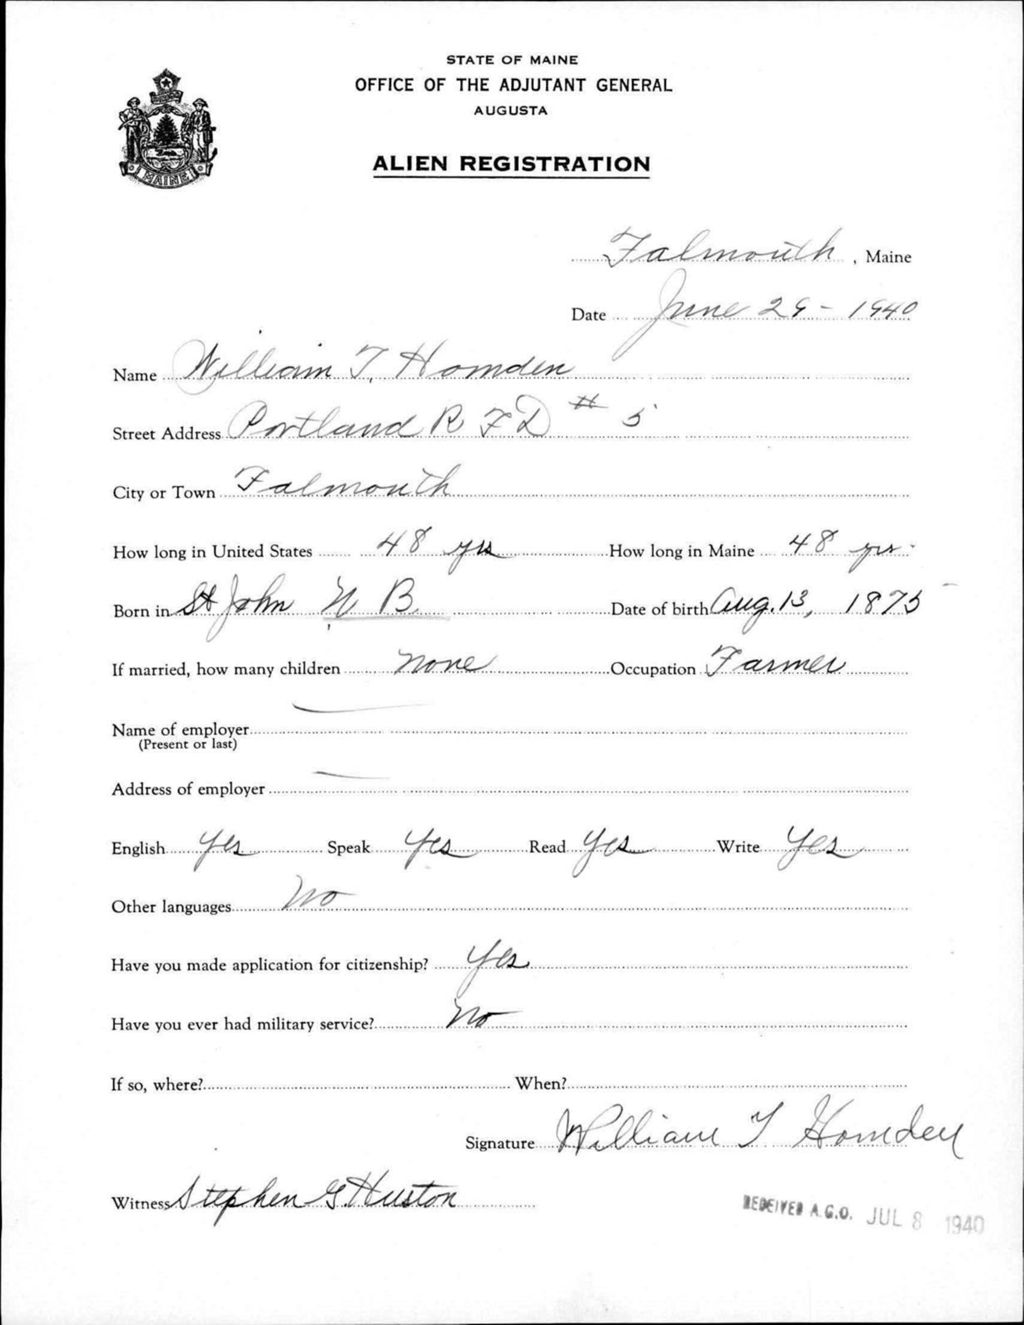 STATE OF MAINE
OFFICE OF THE ADJUTANT GENERAL
AUGUSTA
ALIEN REGISTRATION
MAINE
Falmouth, Maine
Date June 29-1940
Name William T. Homden
Street Address Portland R F D # 5
City or Town Falmouth
How long in United States 48 yrs How long in Maine 48 yrs
Born in St John N B. Date of birth Aug. 13, 1875
If married, how many children none Occupation Farmer
Name of employer
(Present or last)
Address of employer
English Yes Speak Yes Read Yes Write Yes
Other languages No
Have you made application for citizenship? Yes
Have you ever had military service? No
If so, where? When?
Signature William T Homden
Witness Stephen G. Huston
RECEIVED A.G.O. JUL 8 1940